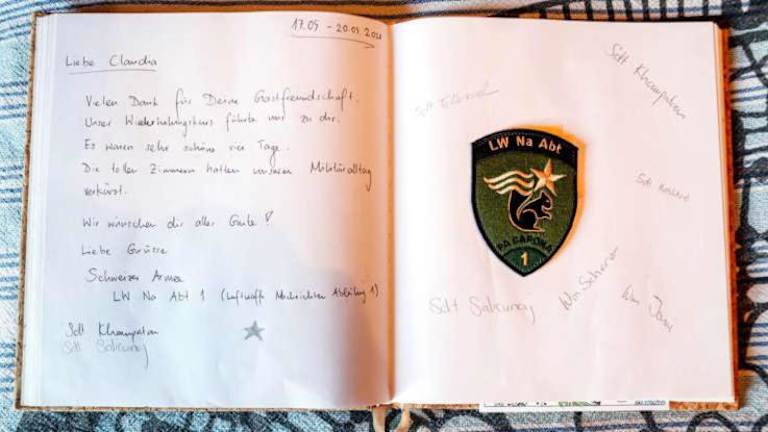 17.05 - 20.05
Liebe Claudia
Vielen Dank für Deine Gastfreundschaft.
Unser Wiederholungskurs führte uns zu dir.
Es waren sehr schöne vier Tage.
Die tollen Zimmern hatten unseren Militäralltag
verkürzt.
Wir wünschen dir alles Gute!
Liebe Grüsse
Schweizer Armee
LW Na Abt 1 (Luftwaffe Nachrichten Abteilung 1)
Sdt Khampatan
Sdt
Sdt Khampatan
Sdt
LW Na Abt
1
Sdt
Sdt
Wm Scherrer
Wm